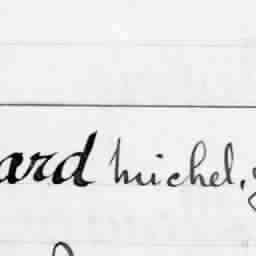 ard michel,